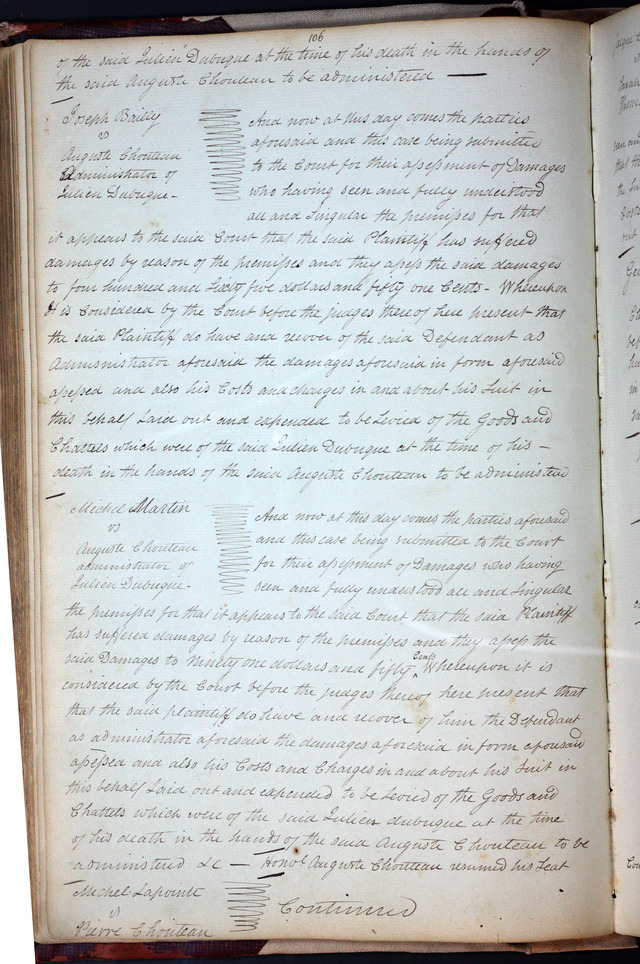 106
of the said Julien Dubuque at the time of his death in the hands of
the said Auguste Chouteau to be administered —
Joseph Bailey
vs
Auguste Chouteau
Administrator of
Julien Dubuque -
And now at this day comes the parties
aforesaid and this case being submitted
to the Court for their assessment of Damages
who having seen and fully understood
all and Singular the premises for that
it appears to the said Court that the said Plaintiff has suffered
damages by reason of the premises and they assess the said damages
to four hundred and Sixty five dollars and fifty one Cents - Whereupon
it is Considered by the Court before the judges thereof here present that
the said Plaintiff do have and recover of the said Defendant as
Administrator aforesaid the damages aforesaid in form aforesaid
assessed and also his Costs and charges in and about his Suit in
this behalf Laid out and expended to be Levied of the Goods and
Chattels which were of the said Julien Dubuque at the time of his —
death in the hands of the said Auguste Chouteau to be administered
Michel Martin
vs
Auguste Chouteau
administrator of
Julien Dubuque -
And now at this day comes the parties aforesaid
and this case being submitted to the Court
for their assessment of Damages who having
seen and fully understood all and Singular
the premises for that it appears to the said Court that the said Plaintiff
has suffered damages by reason of the premises and they assess the
said Damages to Ninety one dollars and fifty Cents Whereupon it is
considered by the Court before the judges thereof here present that
that the said plaintiff do have and recover of him the Defendant
as administrator aforesaid the damages aforesaid in form aforesaid
assessed and also his Costs and Charges in and about his Suit in
this behalf Laid out and expended to be Levied of the Goods and
Chattels which were of the said Julien dubuque at the time
of his death in the hands of the said Auguste Chouteau to be
administered &c — Honobl Auguste Chouteau resumed his Seat
Michel Lapointe
vs
Pierre Chouteau
Continued